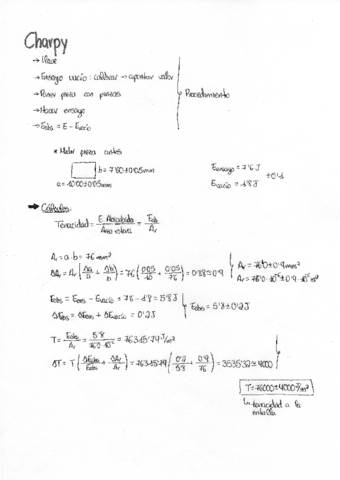 Charpy
→ Llave
→ Ensayo vacío: calibrar → apuntar valor
→ Poner pieza con pinzas
→ Hacer ensayo
→ Eabs = E - Evacío
Procedimiento
* Medir pieza antes
b = 7'60 ± 0'05 mm
a = 10'00 ± 0'05 mm
Eensayo = 7'6 J
Evacío = 1'8 J
± 0'1
→ Cálculos
Tenacidad = E. Absorbida / Área rotura = Eabs / Ar
Ar = a · b = 76 mm²
ΔAr = Ar (Δa/a + Δb/b) = 76 (0'05/10 + 0'05/76) = 0'88 ≈ 0'9
Ar = 76'0 ± 0'9 mm²
Ar = 76'0 · 10⁻⁶ ± 0'9 · 10⁻⁶ m²
Eabs = Eens - Evacío = 7'6 - 1'8 = 5'8 J
ΔEabs = ΔEens + ΔEvacío = 0'2 J
Eabs = 5'8 ± 0'2 J
T = Eabs / Ar = 5'8 / 76'0 · 10⁻⁶ = 76315'79 J/m²
ΔT = T (ΔEabs/Eabs + ΔAr/Ar) = 76315'79 (0'2/5'8 + 0'9/76) = 3535'32 ≈ 4000
T = 76000 ± 4000 J/m²
↳ tenacidad a la
entalla